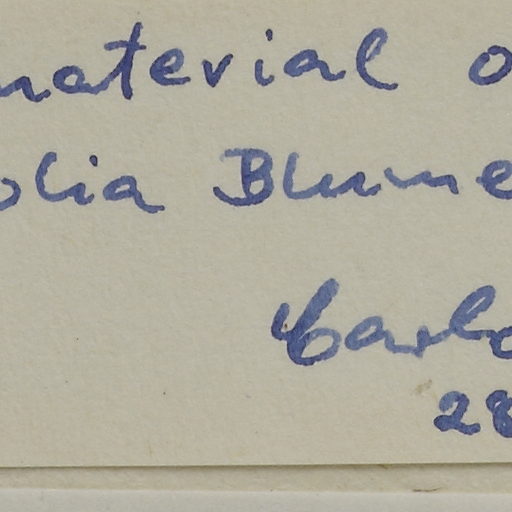 material o
olia Blume
Carlo
28